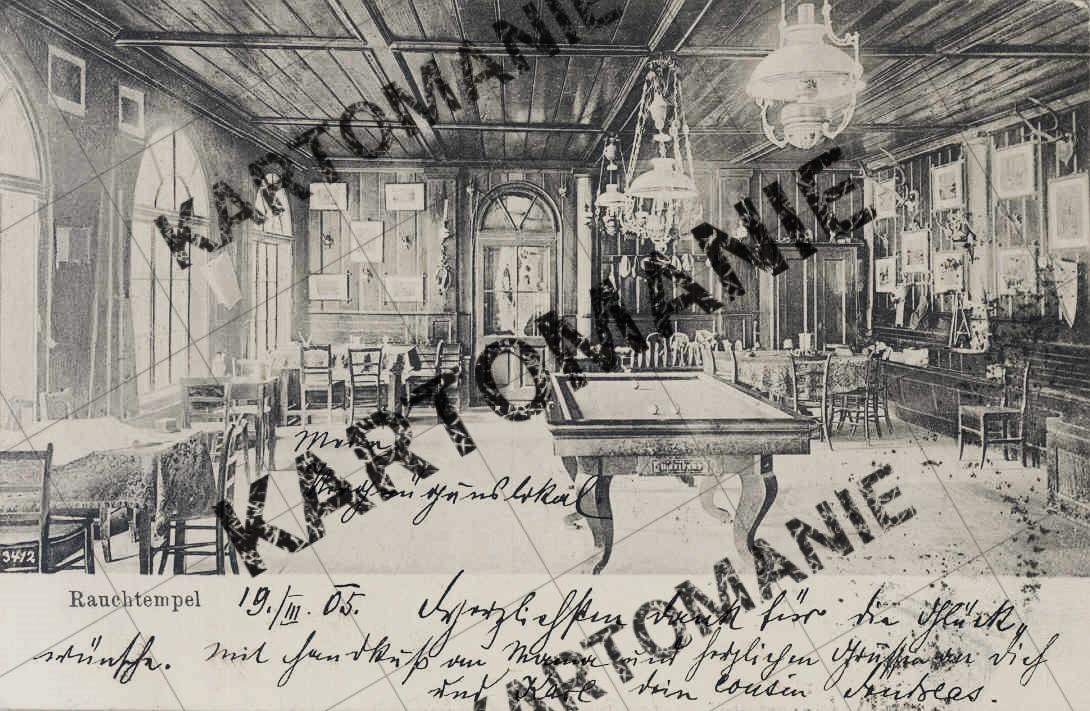 KARTOMANIE
KARTOMANIE
KARTOMANIE
KARTOMANIE
KARTOMANIE
Mein
Vergnügungslokal
3412
Rauchtempel 19./III. 05. Herzlichsten Dank für die Glück„
wünsche. Mit Handkuß an Mama und herzlichen Grüßen an Dich
und Karl dein Cousin Andreas.